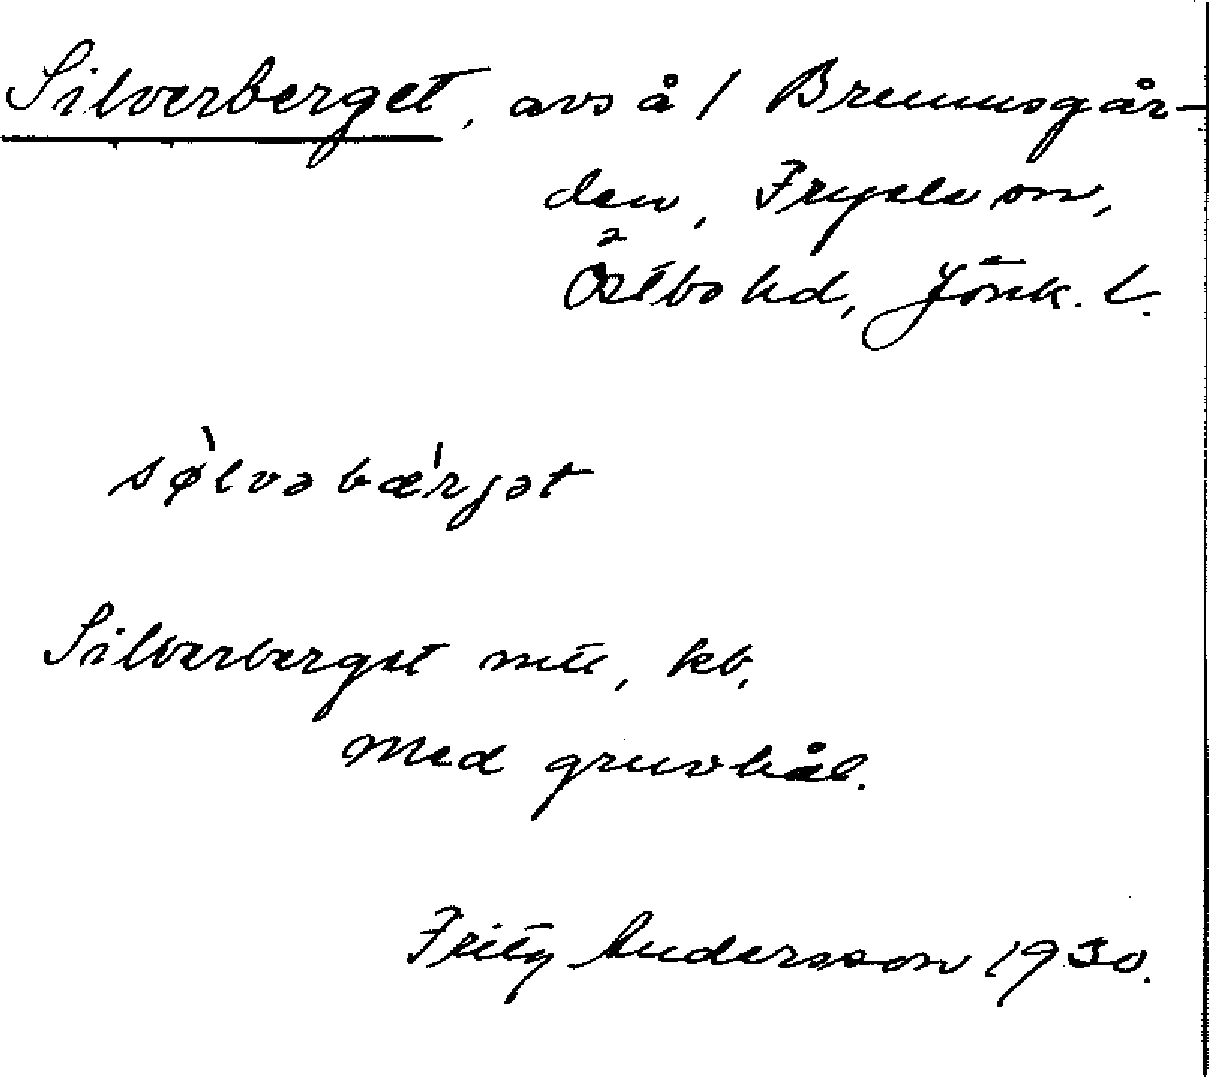 Silverberget, avs å 1
den, Fryele sn,
Östbo hd, Jönk. l.
sø̀lvəbæ'rjət
Silverberget kb.
med gruvhål.
Fritz Andersson 1930.